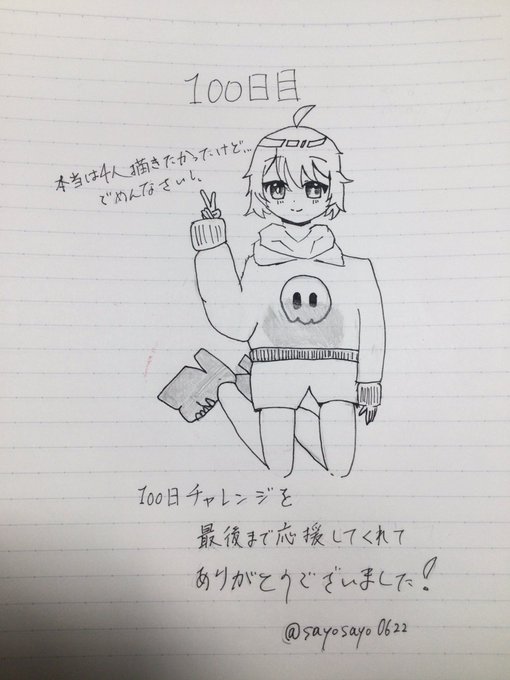 100日目
本当は4人描きたかったけど…
ごめんなさいし、
100日チャレンジを
最後まで応援してくれて
ありがとうございました!
@sayosayo0622